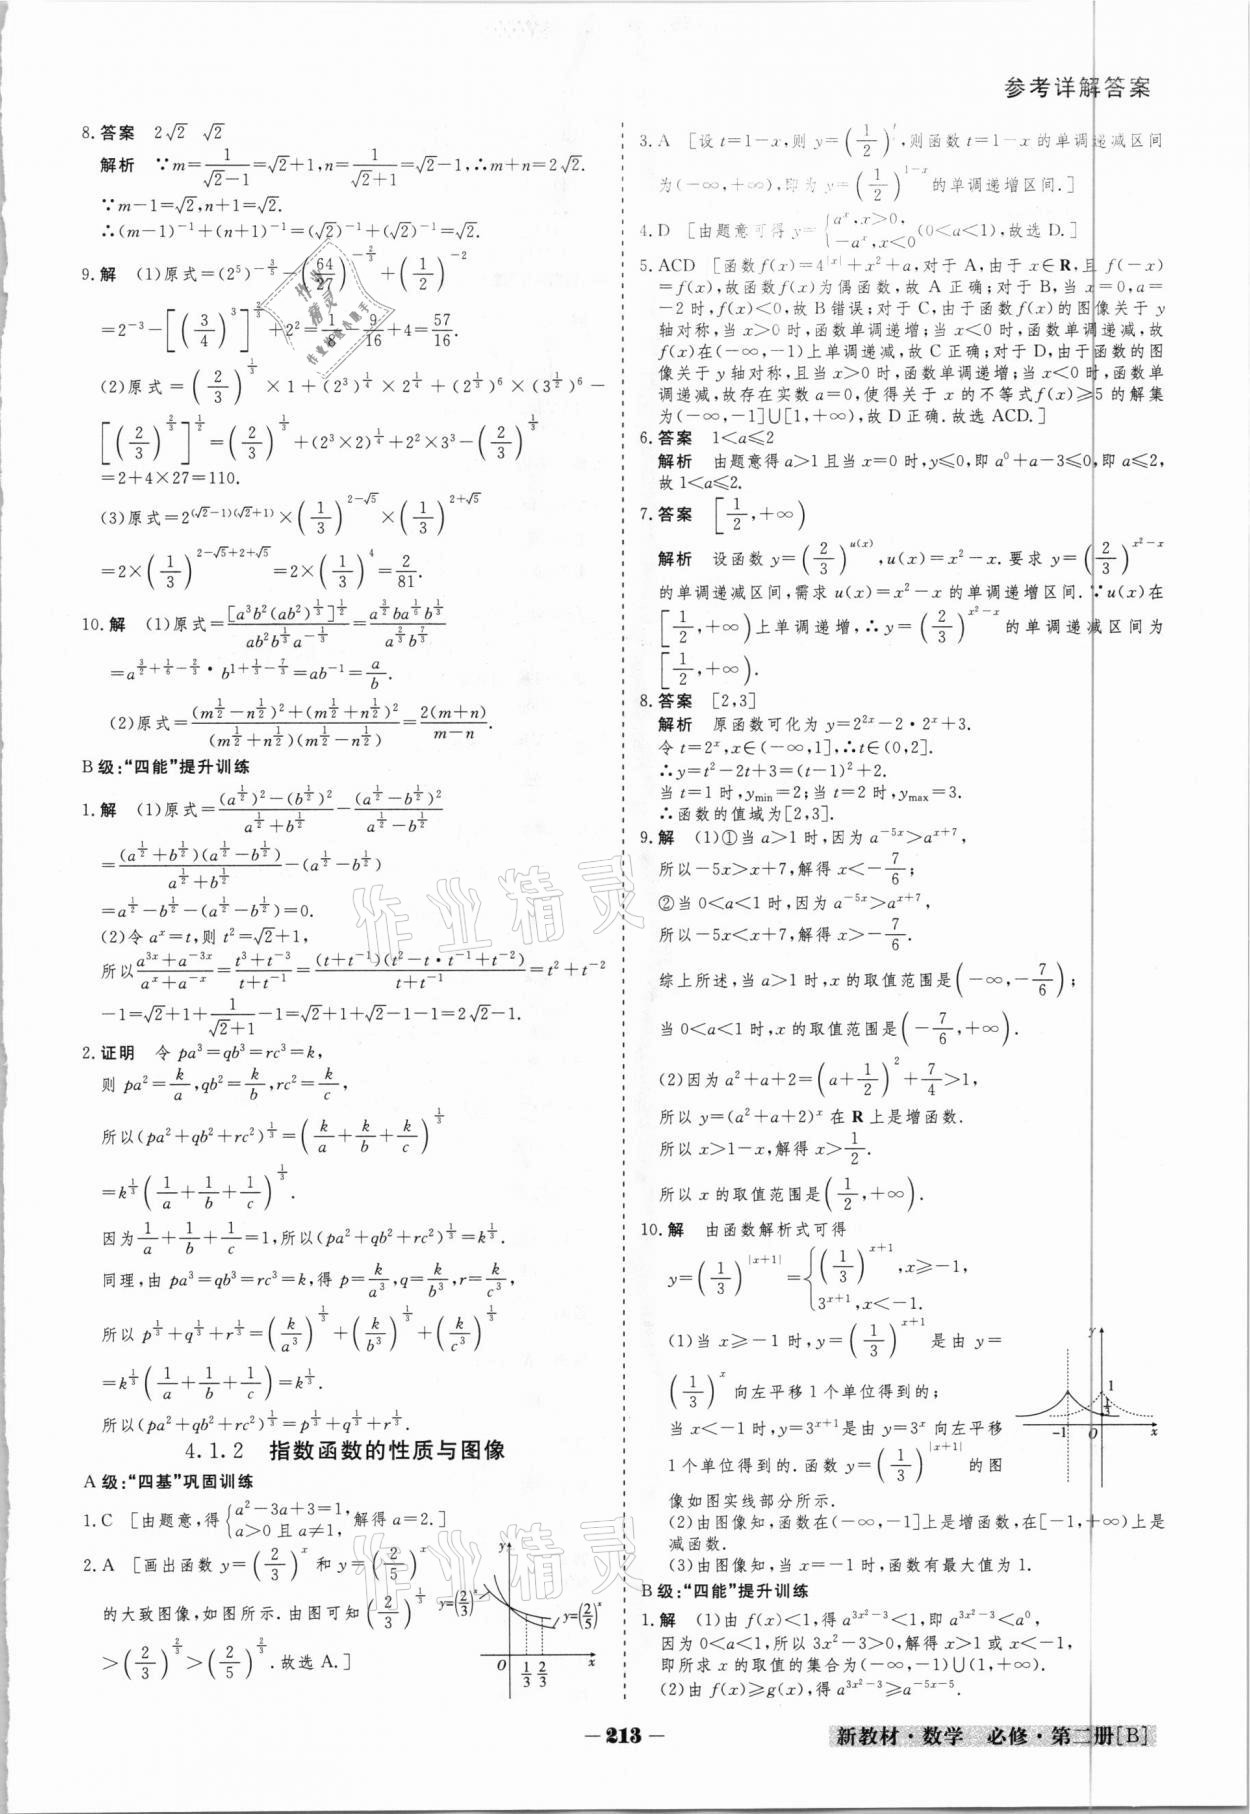 参考详解答案
8.答案 2√2 √2
解析 ∵m=1/(√2-1)=√2+1,n=1/(√2+1)=√2-1,∴m+n=2√2.
∵m-1=√2,n+1=√2.
∴(m-1)^{-1}+(n+1)^{-1}=(√2)^{-1}+(√2)^{-1}=√2.
9.解 (1)原式=(2^5)^{-3/5}-(64/27)^{-2/3}+(1/2)^{-2}
=2^{-3}-[(3/4)^3]^{2/3}+2^2=1/8-9/16+4=57/16.
(2)原式=(2/3)^{1/3}×1+(2^3)^{1/4}×2^{1/4}+(2^{1/3})^6×(3^{1/2})^6-
[(2/3)^{2/3}]^{1/2}=(2/3)^{1/3}+(2^3×2)^{1/4}+2^2×3^3-(2/3)^{1/3}
=2+4×27=110.
(3)原式=2^{(√2-1)(√2+1)}×(1/3)^{2-√5}×(1/3)^{2+√5}
=2×(1/3)^{2-√5+2+√5}=2×(1/3)^4=2/81.
10.解 (1)原式=[a^3b^2(ab^2)^{1/3}]^{1/2}/(ab^2b^{1/3}a^{-1/3})=a^{3/2}ba^{1/6}b^{1/3}/(a^{2/3}b^{7/3})
=a^{3/2+1/6-2/3}·b^{1+1/3-7/3}=ab^{-1}=a/b.
(2)原式=((m^{1/2}-n^{1/2})^2+(m^{1/2}+n^{1/2})^2)/((m^{1/2}+n^{1/2})(m^{1/2}-n^{1/2}))=2(m+n)/(m-n).
B级:“四能”提升训练
1.解 (1)原式=((a^{1/2})^2-(b^{1/2})^2)/(a^{1/2}+b^{1/2})-(a^{1/2}-b^{1/2})^2/(a^{1/2}-b^{1/2})
=(a^{1/2}+b^{1/2})(a^{1/2}-b^{1/2})/(a^{1/2}+b^{1/2})-(a^{1/2}-b^{1/2})
=a^{1/2}-b^{1/2}-(a^{1/2}-b^{1/2})=0.
(2)令a^x=t,则t^2=√2+1,
所以(a^{3x}+a^{-3x})/(a^x+a^{-x})=(t^3+t^{-3})/(t+t^{-1})=(t+t^{-1})(t^2-t·t^{-1}+t^{-2})/(t+t^{-1})=t^2+t^{-2}
-1=√2+1+1/(√2+1)-1=√2+1+√2-1-1=2√2-1.
2.证明 令pa^3=qb^3=rc^3=k,
则pa^2=k/a,qb^2=k/b,rc^2=k/c,
所以(pa^2+qb^2+rc^2)^{1/3}=(k/a+k/b+k/c)^{1/3}
=k^{1/3}(1/a+1/b+1/c)^{1/3}.
因为1/a+1/b+1/c=1,所以(pa^2+qb^2+rc^2)^{1/3}=k^{1/3}.
同理,由pa^3=qb^3=rc^3=k,得p=k/a^3,q=k/b^3,r=k/c^3,
所以p^{1/3}+q^{1/3}+r^{1/3}=(k/a^3)^{1/3}+(k/b^3)^{1/3}+(k/c^3)^{1/3}
=k^{1/3}(1/a+1/b+1/c)=k^{1/3}.
所以(pa^2+qb^2+rc^2)^{1/3}=p^{1/3}+q^{1/3}+r^{1/3}.
4.1.2 指数函数的性质与图像
A级:“四基”巩固训练
1.C [由题意,得{a^2-3a+3=1, a>0且a≠1, 解得a=2.]
2.A [画出函数y=(2/3)^x和y=(2/5)^x
的大致图像,如图所示.由图可知(2/3)^{1/3}
>(2/3)^{2/3}>(2/5)^{2/3}.故选A.]
y
y=(2/3)^x
y=(2/5)^x
O 1/3 2/3 x
3.A [设t=1-x,则y=(1/2)^t,则函数t=1-x的单调递减区间
为(-∞,+∞),即为y=(1/2)^{1-x}的单调递增区间.]
4.D [由题意可得y={a^x,x>0, -a^x,x<0 (0<a<1),故选D.]
5.ACD [函数f(x)=4^{|x|}+x^2+a,对于A,由于x∈R,且f(-x)
=f(x),故函数f(x)为偶函数,故A正确;对于B,当x=0,a=
-2时,f(x)<0,故B错误;对于C,由于函数f(x)的图像关于y
轴对称,当x>0时,函数单调递增;当x<0时,函数单调递减,故
f(x)在(-∞,-1)上单调递减,故C正确;对于D,由于函数的图
像关于y轴对称,且当x>0时,函数单调递增;当x<0时,函数单
调递减,故存在实数a=0,使得关于x的不等式f(x)≥5的解集
为(-∞,-1]∪[1,+∞),故D正确.故选ACD.]
6.答案 1<a≤2
解析 由题意得a>1且当x=0时,y≤0,即a^0+a-3≤0,即a≤2,
故1<a≤2.
7.答案 [1/2,+∞)
解析 设函数y=(2/3)^{u(x)},u(x)=x^2-x.要求y=(2/3)^{x^2-x}
的单调递减区间,需求u(x)=x^2-x的单调递增区间.∵u(x)在
[1/2,+∞)上单调递增,∴y=(2/3)^{x^2-x}的单调递减区间为
[1/2,+∞).
8.答案 [2,3]
解析 原函数可化为y=2^{2x}-2·2^x+3.
令t=2^x,x∈(-∞,1],∴t∈(0,2].
∴y=t^2-2t+3=(t-1)^2+2.
当t=1时,y_{min}=2;当t=2时,y_{max}=3.
∴函数的值域为[2,3].
9.解 (1)①当a>1时,因为a^{-5x}>a^{x+7},
所以-5x>x+7,解得x<-7/6;
②当0<a<1时,因为a^{-5x}>a^{x+7},
所以-5x<x+7,解得x>-7/6.
综上所述,当a>1时,x的取值范围是(-∞,-7/6);
当0<a<1时,x的取值范围是(-7/6,+∞).
(2)因为a^2+a+2=(a+1/2)^2+7/4>1,
所以y=(a^2+a+2)^x在R上是增函数.
所以x>1-x,解得x>1/2.
所以x的取值范围是(1/2,+∞).
10.解 由函数解析式可得
y=(1/3)^{|x+1|}={(1/3)^{x+1},x≥-1, 3^{x+1},x<-1.
(1)当x≥-1时,y=(1/3)^{x+1}是由y=
(1/3)^x向左平移1个单位得到的;
当x<-1时,y=3^{x+1}是由y=3^x向左平移
1个单位得到的.函数y=(1/3)^{|x+1|}的图
像如图实线部分所示.
y
1
1/3
-1 O x
(2)由图像知,函数在(-∞,-1]上是增函数,在[-1,+∞)上是
减函数.
(3)由图像知,当x=-1时,函数有最大值为1.
B级:“四能”提升训练
1.解 (1)由f(x)<1,得a^{3x^2-3}<1,即a^{3x^2-3}<a^0,
因为0<a<1,所以3x^2-3>0,解得x>1或x<-1,
即所求x的取值的集合为(-∞,-1)∪(1,+∞).
(2)由f(x)≥g(x),得a^{3x^2-3}≥a^{-5x-5}.
- 213 -
新教材·数学 必修·第二册[B]
作业精灵
作业精灵
作业精灵